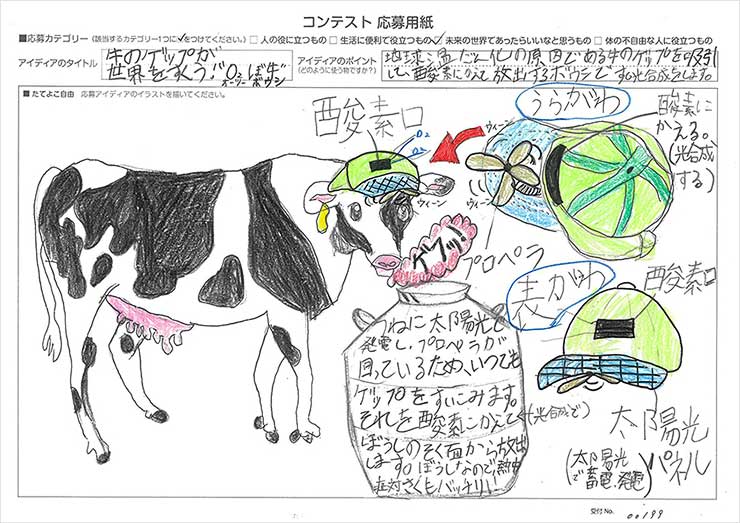 コンテスト 応募用紙
■応募カテゴリー (該当するカテゴリー1つに✓をつけてください。) □ 人の役に立つもの □ 生活に便利で役立つもの ✓ 未来の世界であったらいいなと思うもの □ 体の不自由な人に役立つもの
アイディアのタイトル
牛のゲップが
世界をすくう!! O₂ ぼ牛
オーシー ボウシ
アイディアのポイント
(どのように使う物ですか?)
地球温だん化の原因である牛のゲップを吸引
して、酸素にかえて放出するボウシです。光合成をします。
■たてよこ自由 応募アイディアのイラストを描いてください。
酸素口
O₂
O₂
ウィーン
ウィーン
ウィーン
ウィーン
うらがわ
酸素に
かえる。
(光合成
する)
ゲフッ!
プロペラ
表がわ
酸素口
つねに太陽光で
発電し、プロペラが
回っているため、いつでも
ゲップをすいこみます。
それを酸素にかえて(光合成で)
ぼうしのそく面から放出
します。ぼうしなので熱中
症対さくもバッチリ!
太陽光
パネル
(太陽光
で蓄電、発電)
受付 No. 00199